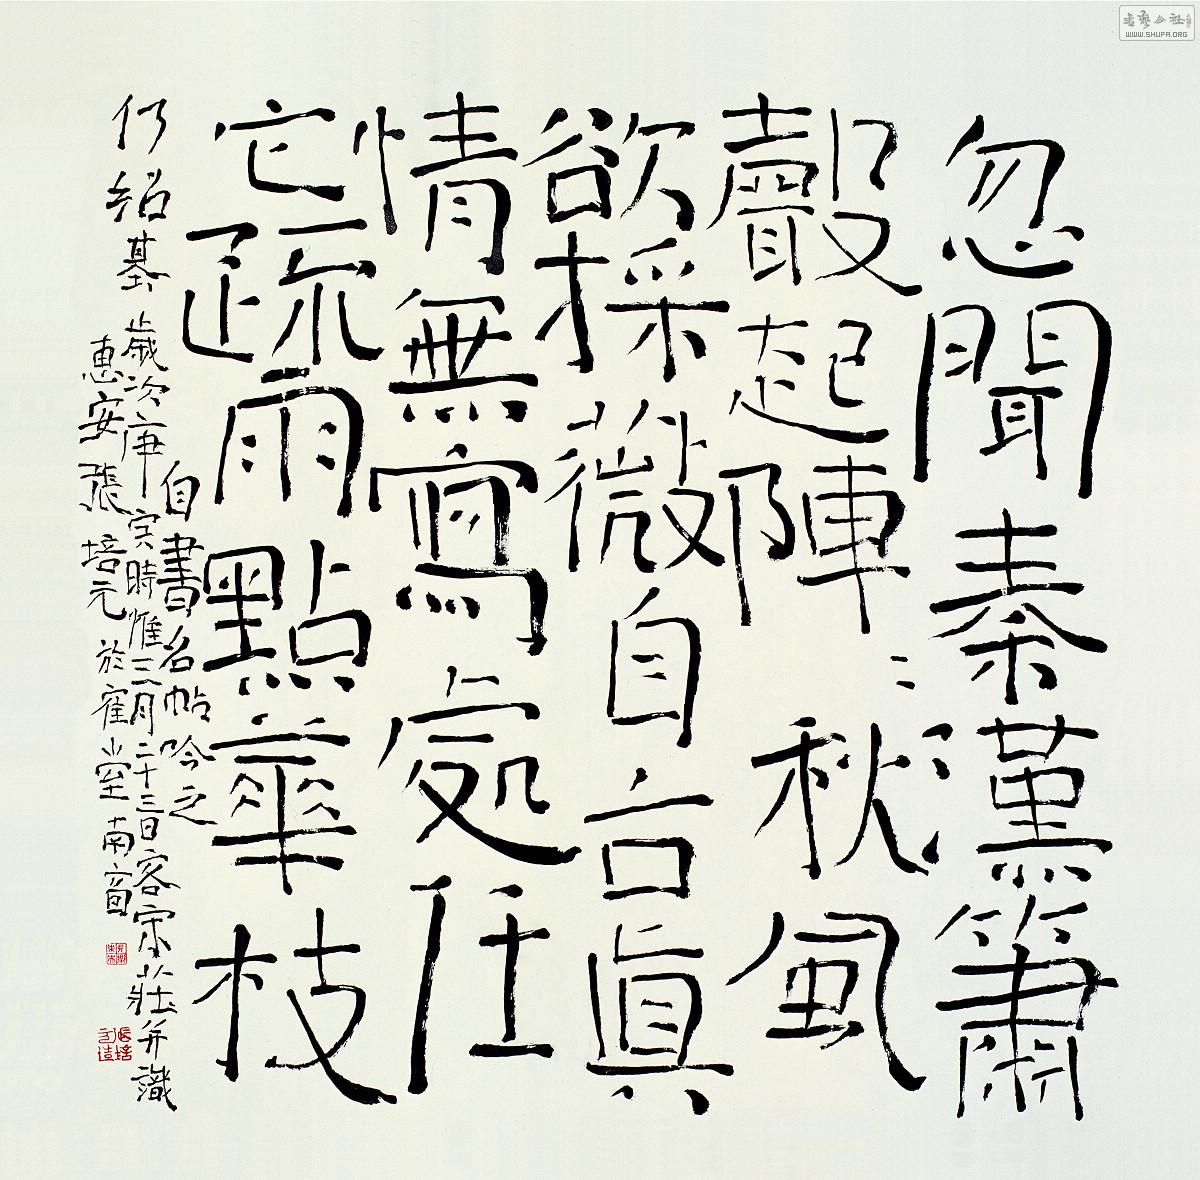 忽聞秦漢簫
聲起陣〻秋風
欲採薇自言真
情無寫處任
它疏雨點華枝
自書名帖吟之
仍紹基歲次庚寅時惟三月二十三日客宋莊并識
惠安張培元於寉堂南窗
書藝公社
WWW.SHUFA.ORG